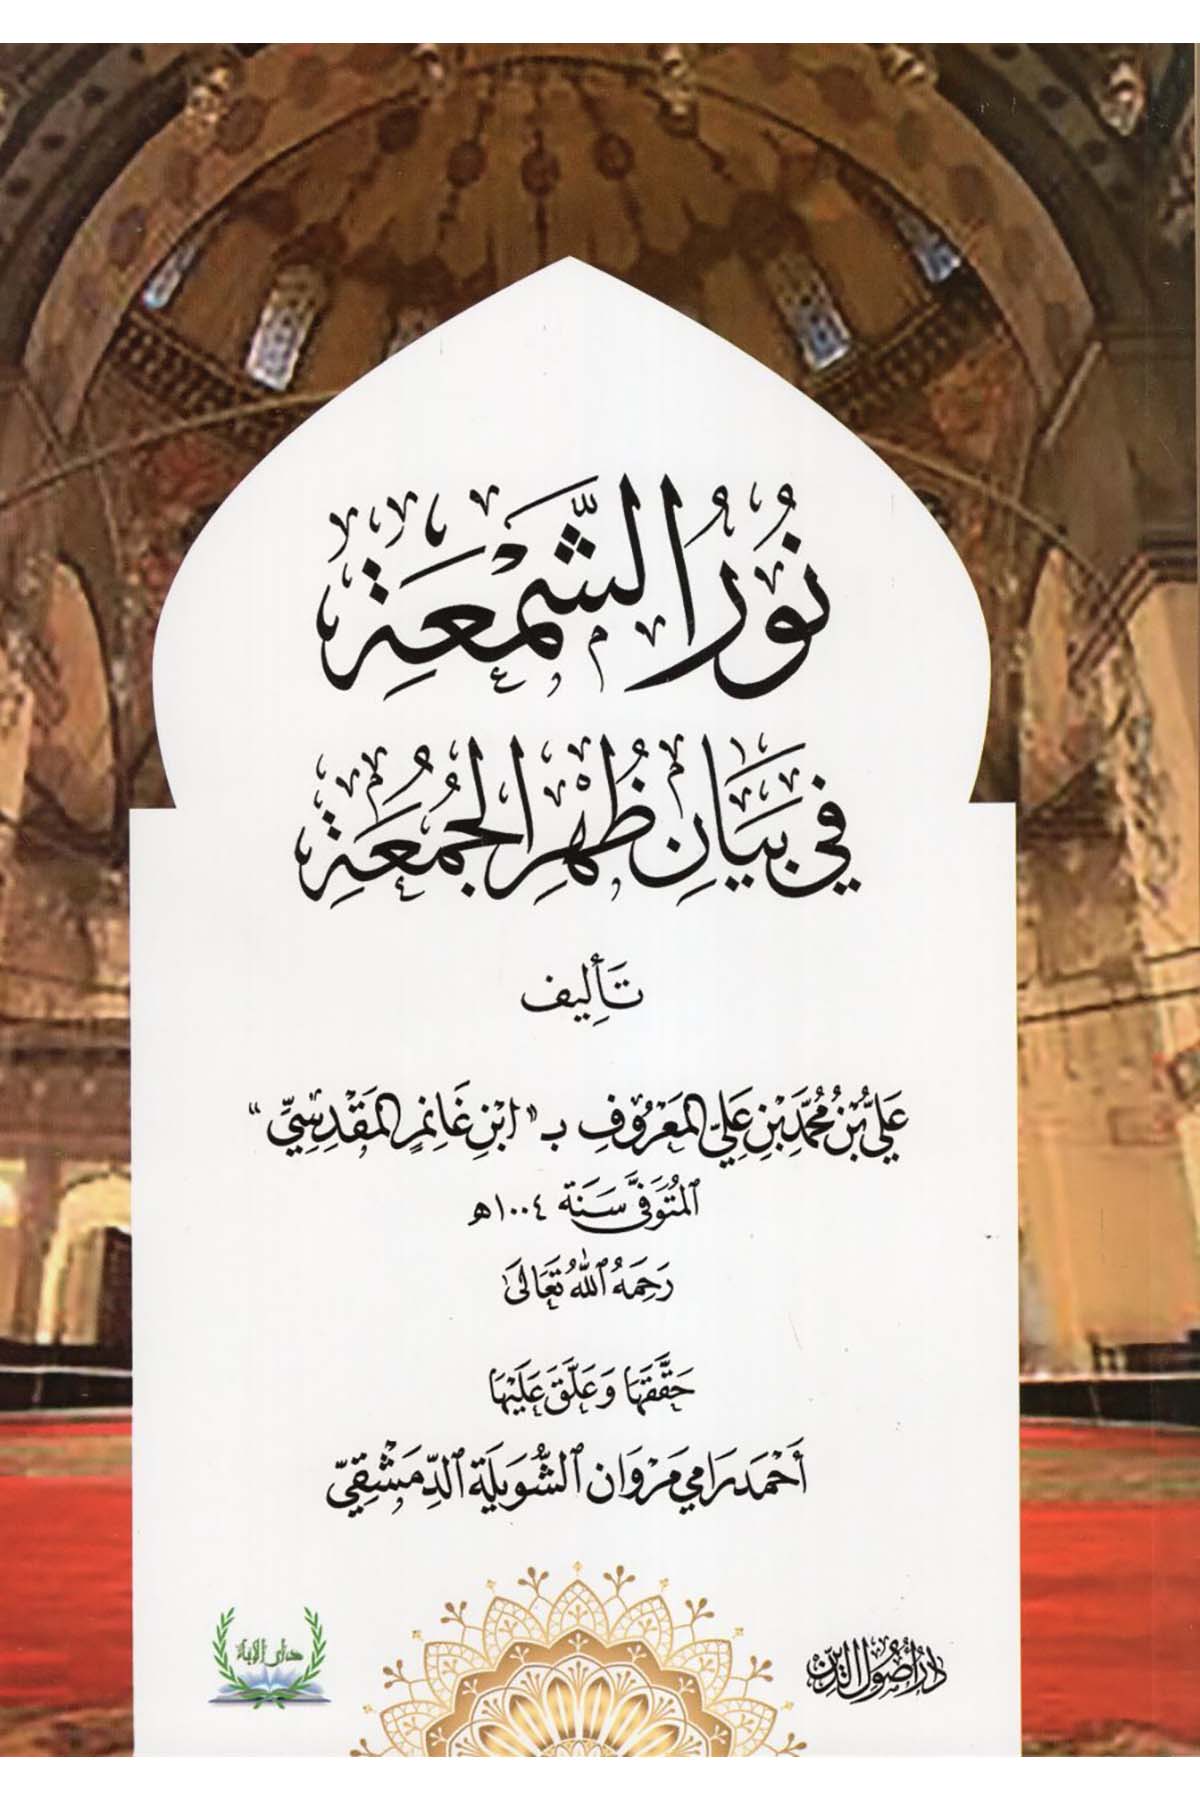 نُورُ الشَّمْعَةِ
فِي بَيَانِ ظُهْرِ الْجُمُعَةِ
تَأْلِيف
عَلِيُّ بْنُ مُحَمَّدِ بْنِ عَلِيٍّ المَعْرُوفِ بـ "ابْنِ غَانِمِ المَقْدِسِيِّ"
المُتَوَفَّى سَنَة ١٠٠٤هـ
رَحِمَهُ اللهُ تَعَالَى
حَقَّقَهَا وَعَلَّقَ عَلَيْهَا
أَحْمَد رَامِي مَرْوَان الشُّوَيْلَة الدِّمَشْقِيّ
دار أصول الدين
دار الآية